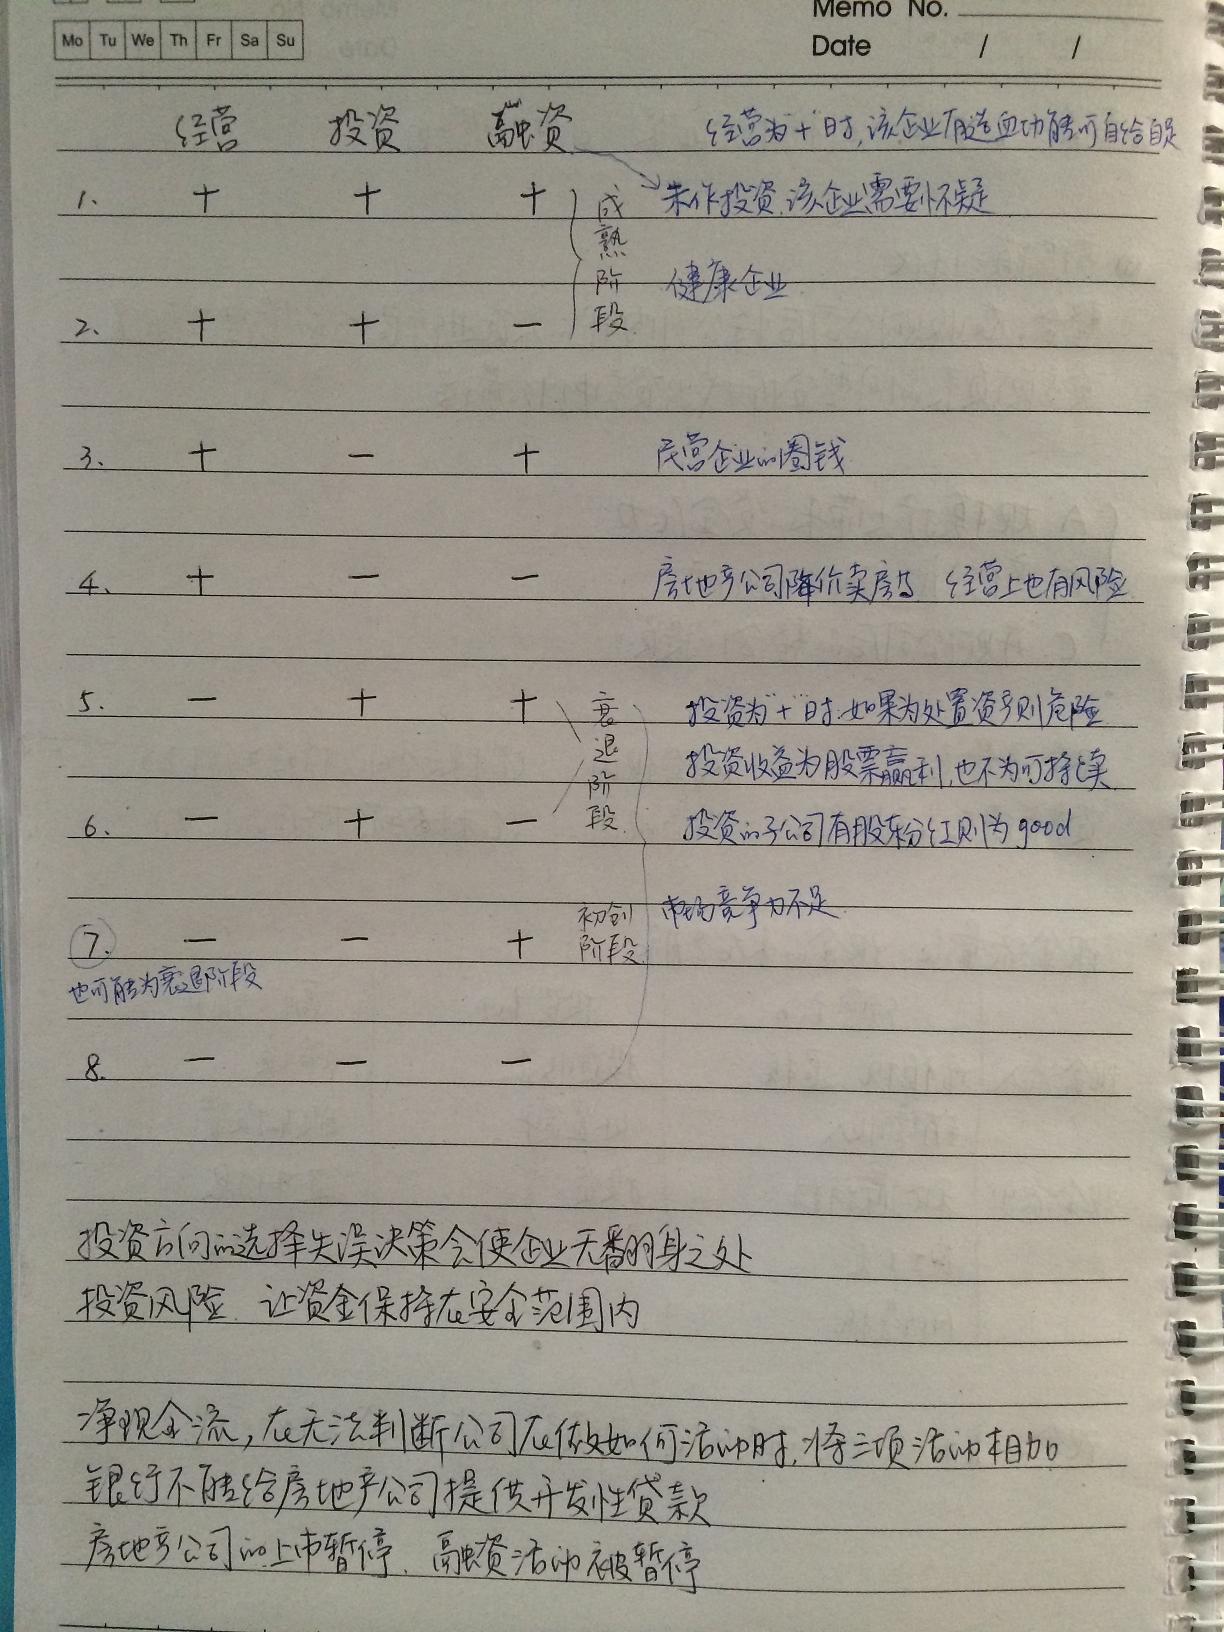 Memo No.
Mo Tu We Th Fr Sa Su
Date / /
经营 投资 融资 经营为"+"时,该企业有造血功能可自给自足
1. + + + 成熟阶段 未作投资,该企业需要怀疑
健康企业
2. + + −
3. + − + 民营企业的圈钱
4. + − − 房地产公司降价卖房 经营上也有风险
5. − + + 衰退阶段 投资为"+"时,如果为处置资产则危险
投资收益为股票赢利,也不为可持续
6. − + − 投资的子公司有股东分红则为good
市场竞争力不足
7. − − + 初创阶段
也可能为衰退阶段
8. − − −
投资方向的选择失误决策会使企业无翻身之处
投资风险 让资金保持在安全范围内
净现金流,在无法判断公司在做如何活动时,将三项活动相加
银行不能给房地产公司提供开发性贷款
房地产公司的上市暂停、融资活动被暂停